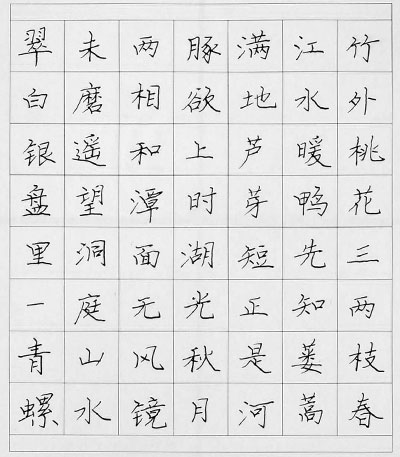 竹外桃花三两枝春
江水暖鸭先知蒌蒿
满地芦芽短正是河
豚欲上时湖光秋月
两相和潭面无风镜
未磨遥望洞庭山水
翠白银盘里一青螺